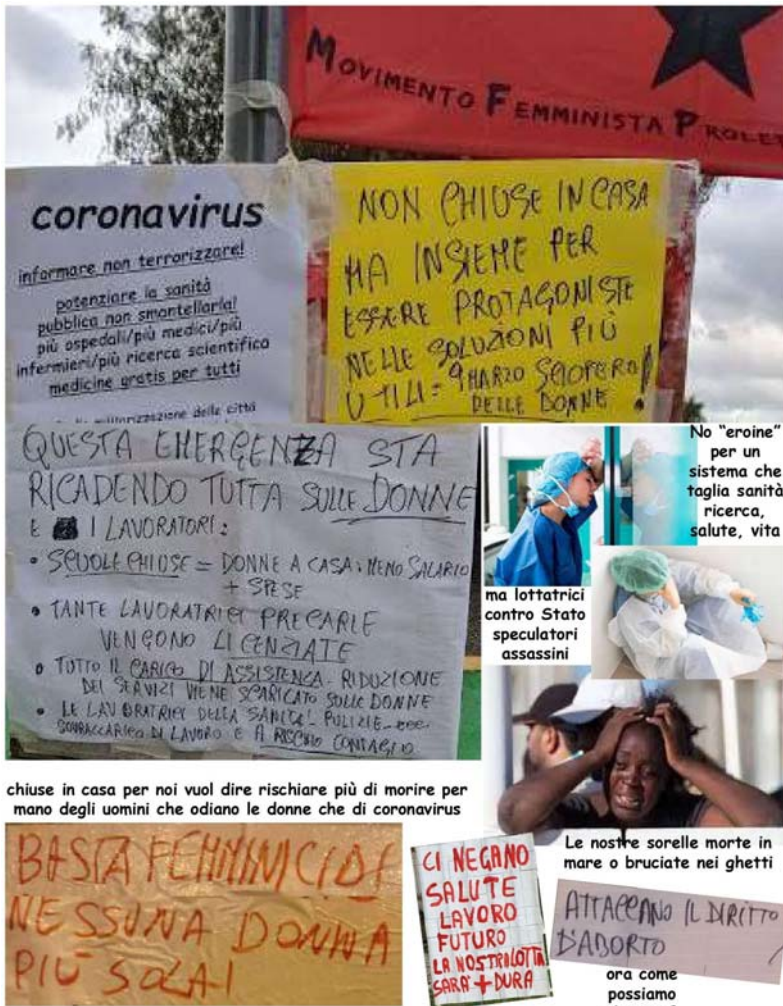 MOVIMENTO FEMMINISTA PROLET
coronavirus
informare non terrorizzare!
potenziare la sanità
pubblica non smantellarla!
più ospedali/più medici/più
infermieri/più ricerca scientifica
medicine gratis per tutti
delle città
NON CHIUSE IN CASA
MA INSIEME PER
ESSERE PROTAGONISTE
NELLE SOLUZIONI PIÙ
UTILI = 9 MARZO SCIOPERO
DELLE DONNE!
QUESTA EMERGENZA STA
RICADENDO TUTTA SULLE DONNE
E I LAVORATORI:
• SCUOLE CHIUSE = DONNE A CASA: MENO SALARIO
+ SPESE
• TANTE LAVORATRICI PRECARIE
VENGONO LICENZIATE
• TUTTO IL CARICO DI ASSISTENZA - RIDUZIONE
DEI SERVIZI VIENE SCARICATO SULLE DONNE
• LE LAVORATRICI DELLA SANITÀ - PULIZIE - ecc.
SOVRACCARICO DI LAVORO E A RISCHIO CONTAGIO
No "eroine"
per un
sistema che
taglia sanità
ricerca,
salute, vita
ma lottatrici
contro Stato
speculatori
assassini
chiuse in casa per noi vuol dire rischiare più di morire per
mano degli uomini che odiano le donne che di coronavirus
Le nostre sorelle morte in
mare o bruciate nei ghetti
BASTA FEMMINICIDI
NESSUNA DONNA
PIÙ SOLA!
CI NEGANO
SALUTE
LAVORO
FUTURO
LA NOSTRA LOTTA
SARA' + DURA
ATTACCANO IL DIRITTO
D'ABORTO
ora come
possiamo